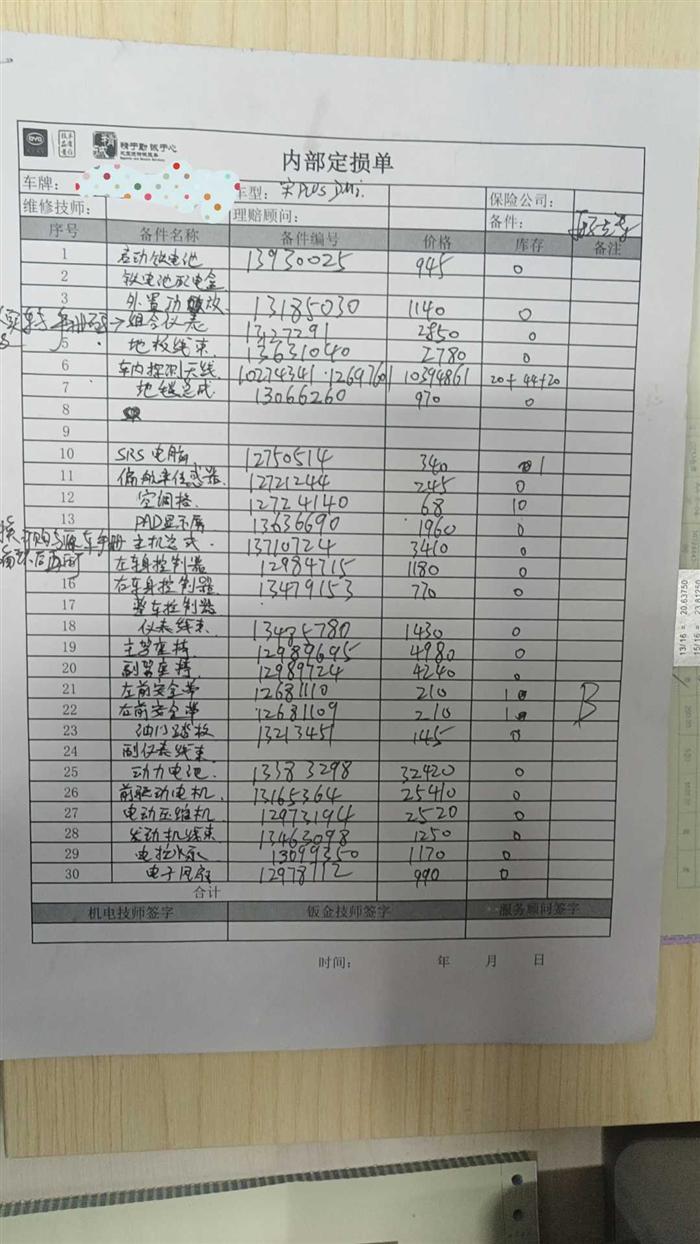 BYD 精诚 精于勤 诚于心
内部定损单
车牌: 车型: 宋PLUS DMi. 保险公司:
维修技师: 理赔顾问: 备件:
序号 备件名称 备件编号 价格 库存 备注
1 启动铁电池 13930025 945 0
2 铁电池配电盒
3 外置功放 13185030 1140 0
组合仪表 13127291 2850 0
5 地板线束 13631040 2780 0
6 车内探测天线 10274341 12697601 10394861 20+44+20
7 地毯总成 13066260 970 0
8
9
10 SRS电脑 12750514 340 1
11 偏航率传感器 12721244 245 0
12 空调格 12724140 68 10
13 PAD显示屏 13636690 1960 0
主机总成 13710724 3410 0
左车身控制器 12984715 1180 0
16 右车身控制器 13479153 770 0
17 整车控制器
18 仪表线束 13485780 1430 0
19 主驾座椅 12989695 4980 0
20 副驾座椅 12989724 4240 0
21 左前安全带 12681110 210 1
22 右前安全带 12681109 210 1 B
23 油门踏板 13213451 145 0
24 副仪表线束
25 动力电池 13383298 32420 0
26 前驱动电机 13165364 25410 0
27 电动压缩机 12973194 2520 0
28 发动机线束 13463098 1250 0
29 电控水泵 13099350 1170 0
30 电子风扇 12978712 990 0
合计
机电技师签字 钣金技师签字 服务顾问签字
时间: 年 月 日
13/16 = 20.63750
15/16 = 23.81250